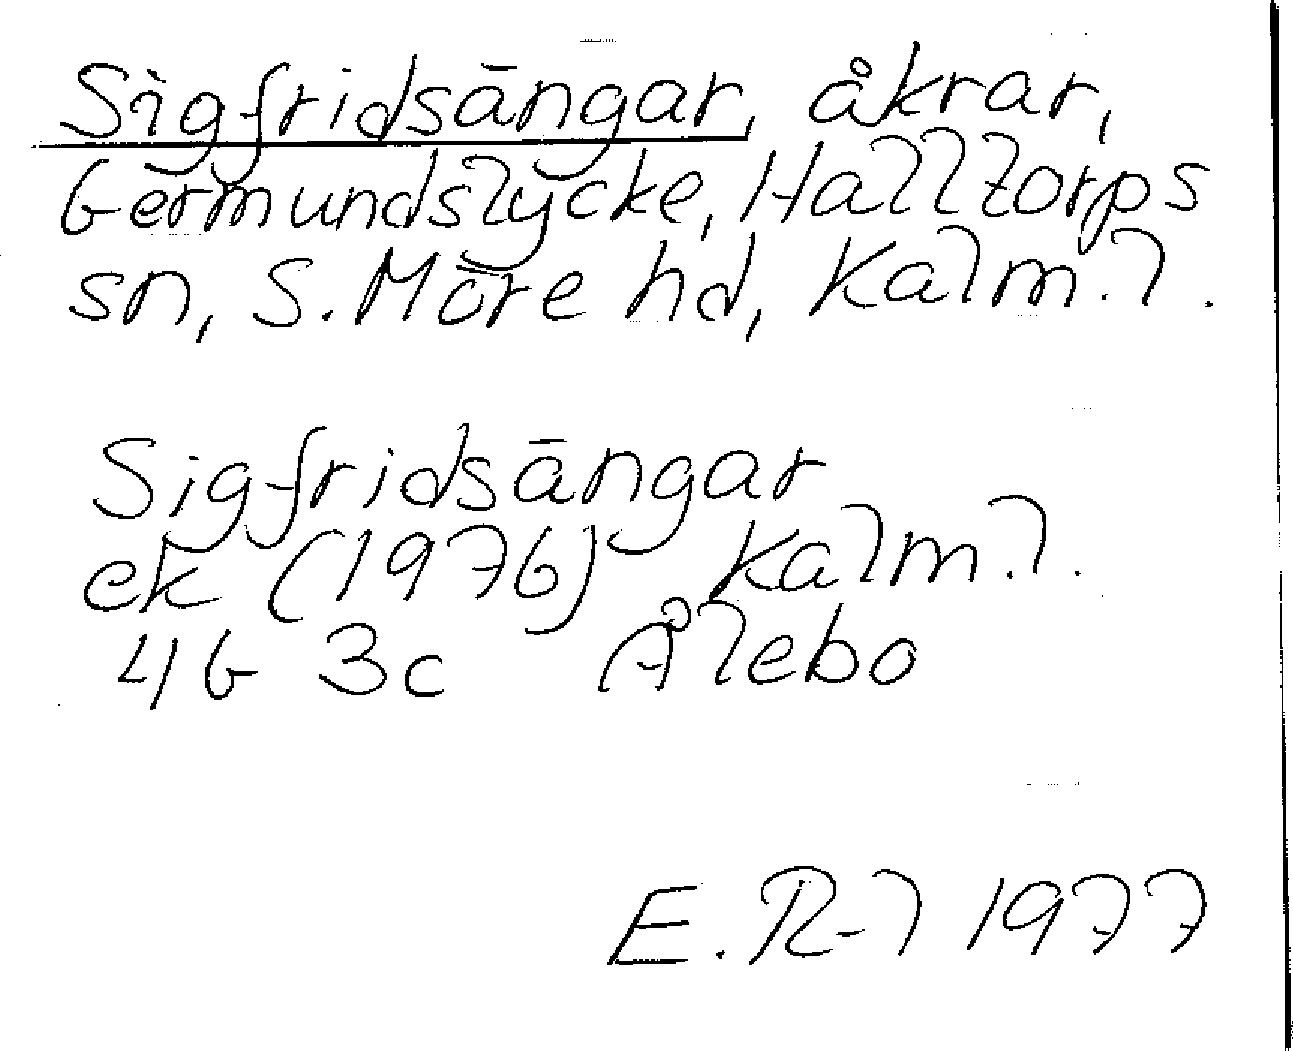 Sigfridsängar, åkrar,
Germundslycke, Halltorps
sn, S. Möre hd, Kalm. l.
Sigfridsängar
ek (1976) Kalm. l.
4G 3c Ålebo
E. R-l 1977